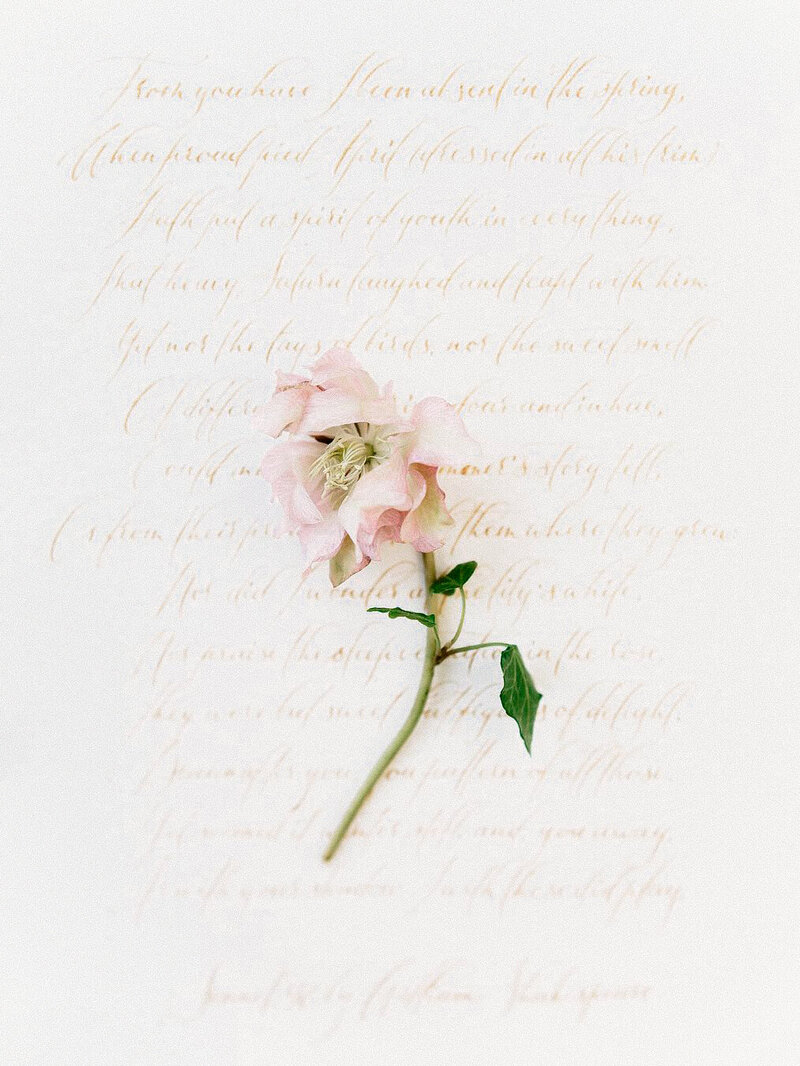 From you have I been absent in the spring,
When proud pied April dressed in all his trim
Hath put a spirit of youth in every thing,
That heavy Saturn laughed and leapt with him.
Yet nor the lays of birds, nor the sweet smell
Of differe in odour and in hue,
Could m mmer's story tell,
Or from their pro them where they grew:
Nor did I wonder a the lily's white,
Nor praise the deep ve in the rose,
They were but sweet but figures of delight,
Drawn after you you pattern of all those.
Yet seemed it winter still and you away
As with your shadow I with these did play
Sonnet by William Shakespeare